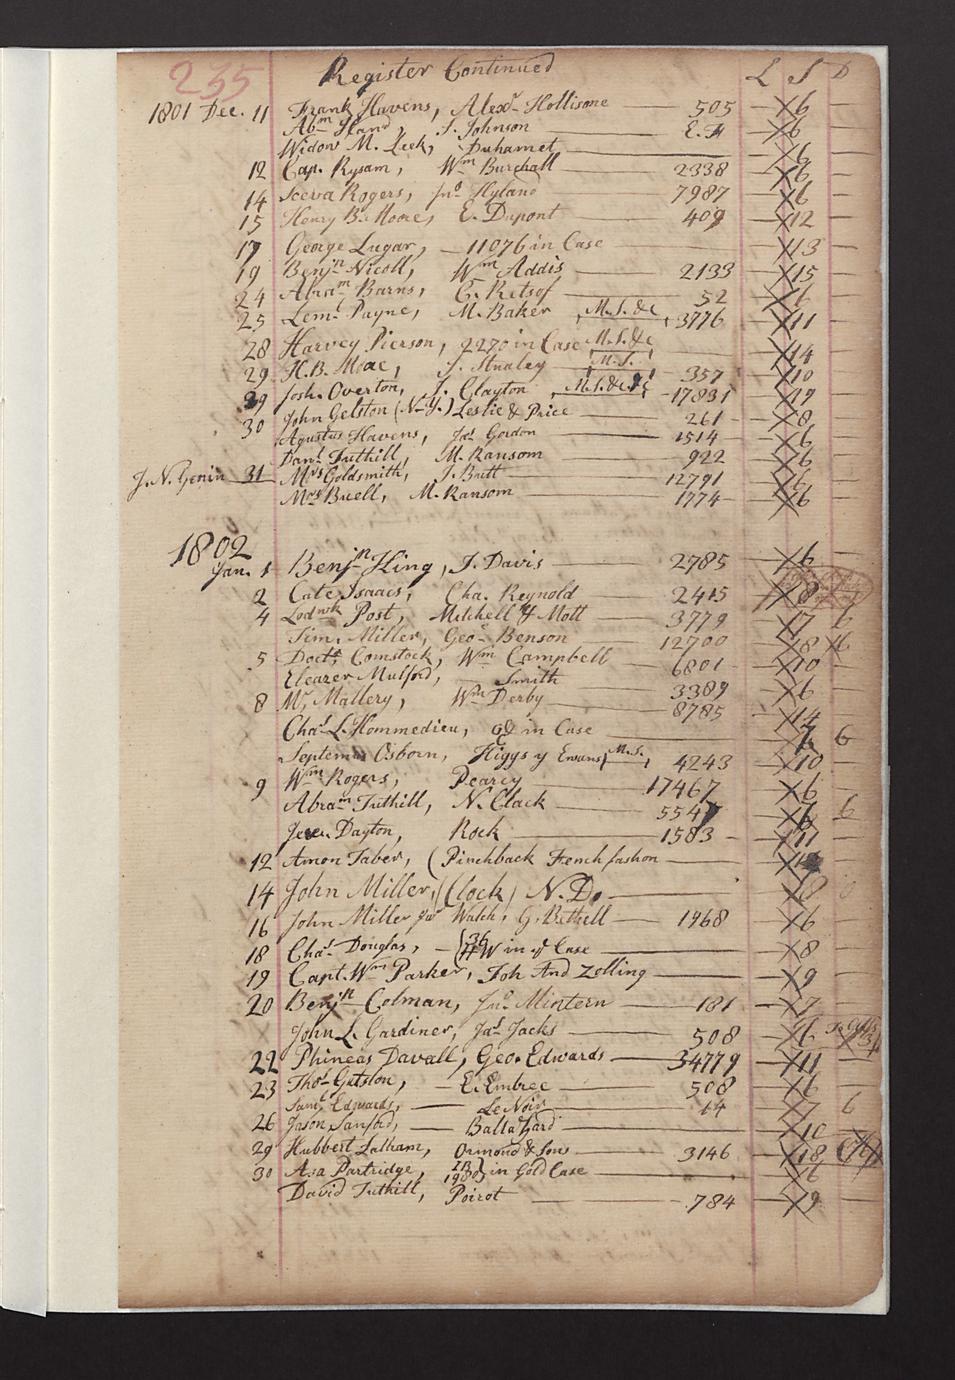 235 Register Continued L S D
1801 Dec. 11 Frank Havens, Alexr Hollisone — 505 — 6
Abm Hand, J. Johnson — E.H — 6
Widow M. Leek, Duhamet — 6
12 Cap. Rysam, Wm Burchall — 2338 — 6
14 Seeva Rogers, Jno Hyland — 7987 — 6
15 Henry B. Moore, E. Dupont — 409 — 12
17 George Lugar, — 11076 in Case — 13
19 Benjn Nicoll, Wm Addis — 2133 — 15
24 Abram Barns, C. Retsof — 52 — 6
25 Leml Payne, M. Baker, M.S. &c, 3776 — 11
28 Harvey Pierson, 2270 in Case M.S. &c — 14
29 H.B. Moore, J. Stualey M.S. 357 — 10
29 Josh. Overton, J. Clayton, M.S. &c 17831 — 19
30 John Gelston (N.Y.) Leslie & Price — 261 — 8
Agustus Havens, Jas Gordon — 1514 — 6
Danl Tuthill, M. Ransom — 922 — 6
J. N. Genin 31 Mrs Goldsmith, J. Britt — 12791 — 6
Mrs Buell, M. Ransom — 1774 — 6
1802
Jan. 1 Benjn King, J. Davis — 2785 — 6
2 Cate Isaacs, Cha. Reynold — 2415 — 8
4 Lodwk Post, Mitchell & Mott — 3779 — 17 6
Tim. Miller, Geo. Benson — 12700 — 18 6
5 Doctr Comstock, Wm Campbell — 6801 — 10
Eleazer Mulford, — Smith — 3389 — 6
8 Mr Mallery, Wm Derby — 8785 — 14
Chas L. Hommedieu, in Case — 6
Septemus Osborn, Higgs y Evans, M.S., 4243 — 10
9 Wm Rogers, Pearcy — 17467 — 6
Abram Tuthill, N. Clack — 5547 — 6
Jere. Dayton, Rock — 1583 — 11
12 Amon Taber, (Pinchback French fashon
14 John Miller, (Clock) N. Do — 8
16 John Miller Jur Watch, G. Bethell — 1468 — 6
18 Chas Douglas, — W in of Case — 8
19 Capt. Wm Parker, Joh And Zolling — 9
20 Benjn Colman, Jno Mintern — 181 — 7
John L. Gardiner, Jas Jacks — 508 — 6
22 Phineas Davall, Geo. Edwards — 34779 — 11
23 Thos Gelston, — E. Embree — 508 — 6
Saml Edwards, — Le Noir — 14 — 7 6
26 Jason Sanford, — Ballahard — 10
29 Hubbert Latham, Ormond & Sons — 3146 — 18
30 Asa Partridge, in Gold Case — 6
David Tuthill, Poirot — 784 — 9